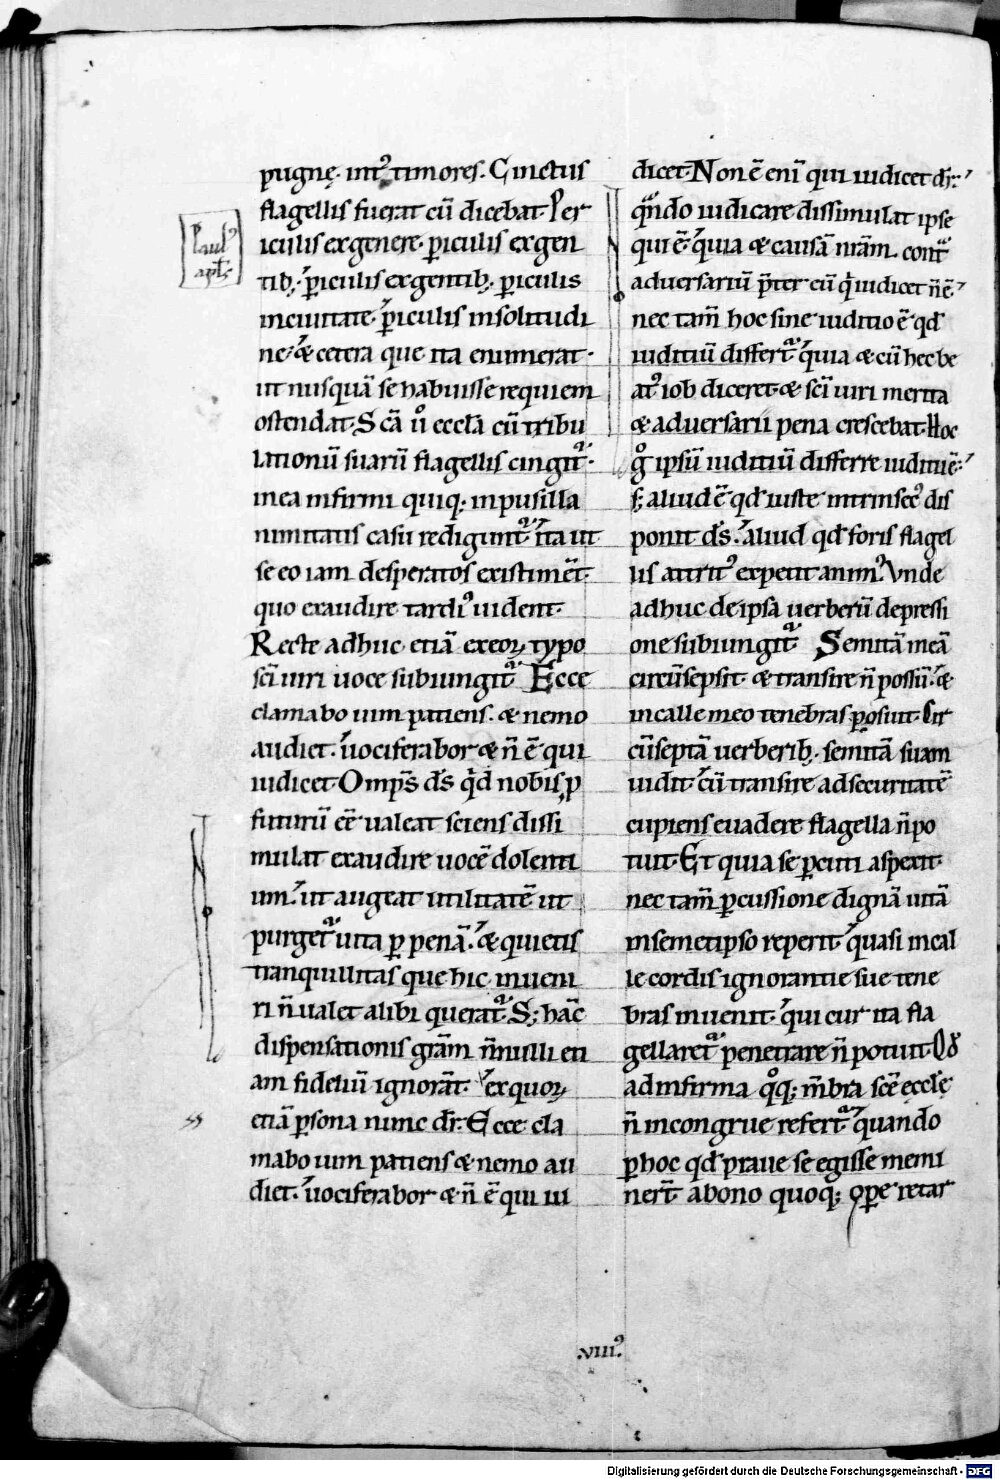 pugnę. int᷒ timores. Cinctus
flagellis fuerat cū dicebat. Per
iculis ex genere. p̲iculis ex gen
tib;. p̲iculis ex gentib;. p̲iculis
in ciuitate. p̲iculis in solitudi
ne. & cetera que ita enumerat.
ut nusquā se habuisse requiem
ostendat. Scā ů eccl̄a cū tribu
lationū suarū flagellis cingit᷑.
in ea infirmi quiq; in pusilla
nimitatis casū redigunt᷑. ita ut
se eo iam desperatos existimēt.
quo exaudire tardi᷒ uident.
Recte adhuc etiā ex eoꝝ typo
sc̄i uiri uoce subiungit᷑. Ecce
clamabo uim patiens. & nemo
audiet. uociferabor & n̄ ē qui
iudicet. Omp̄s d̄s qd̄ nobis p̲
futurū eē ualeat sciens dissi
mulat exaudire uocē dolenti
um. ut augeat utilitatē. ut
purget᷑ uita p̲ penā. & quietis
tranquillitas que hic inueni
ri n̄ ualet alibi querat᷑. S; hāc
dispensationis gr̄am n̄nulli eti
am fideliū ignorāt. ex quoꝝ
etiā p̲sona nunc dr̄. Ecce cla
mabo uim patiens & nemo au
diet. uociferabor & n̄ ē qui iu
Paul᷒
apl̄s
dicet. Non ē enī qui iudicet dr̄.
qn̄do iudicare dissimulat ipse
qui ē. quia & causā nr̄am contᷓ
aduersariū p̄ter eū q̇ iudicet n̄ ē.
nec tam̄ hoc sine iuditio ē. qd̄
iuditiū differt᷑. quia & cū hec be
at᷒ iob diceret. & sc̄i uiri merita
& aduersarii pena crescebat. Hoc
g̊ ipsū iuditiū differre iuditiū ē.
s; aliud ē qd̄ iuste intrinsec᷒ dis
ponit d̄s. aliud qd̄ foris flagel
lis attrit᷒ expetit anim᷒. Vnde
adhuc de ipsa uerberū depressi
one subiungit᷑. Semitā meā
circūsepsit. & transire n̄ possū. &
in calle meo tenebras posuit. Cir
cūseptā uerberib;. semitā suam
uidit. cū transire ad securitatē
cupiens euadere flagella n̄ po
tuit. Et quia se p̲cuti aspexit.
nec tam̄ p̲cussione dignā uitā
in semetipso reperit. quasi in cal
le cordis ignorantie sue tene
bras inuenit. qui cur ita fla
gellaret᷑ penetrare n̄ potuit. Qd̄
ad infirma q̊q; m̄bra scē ecclę
n̄ incongrue refert᷑. quando
p̲ hoc qd̄ praue se egisse memi
nert̄. a bono quoq; op̲e retar
.VIII᷒.
Digitalisierung gefördert durch die Deutsche Forschungsgemeinschaft - DFG